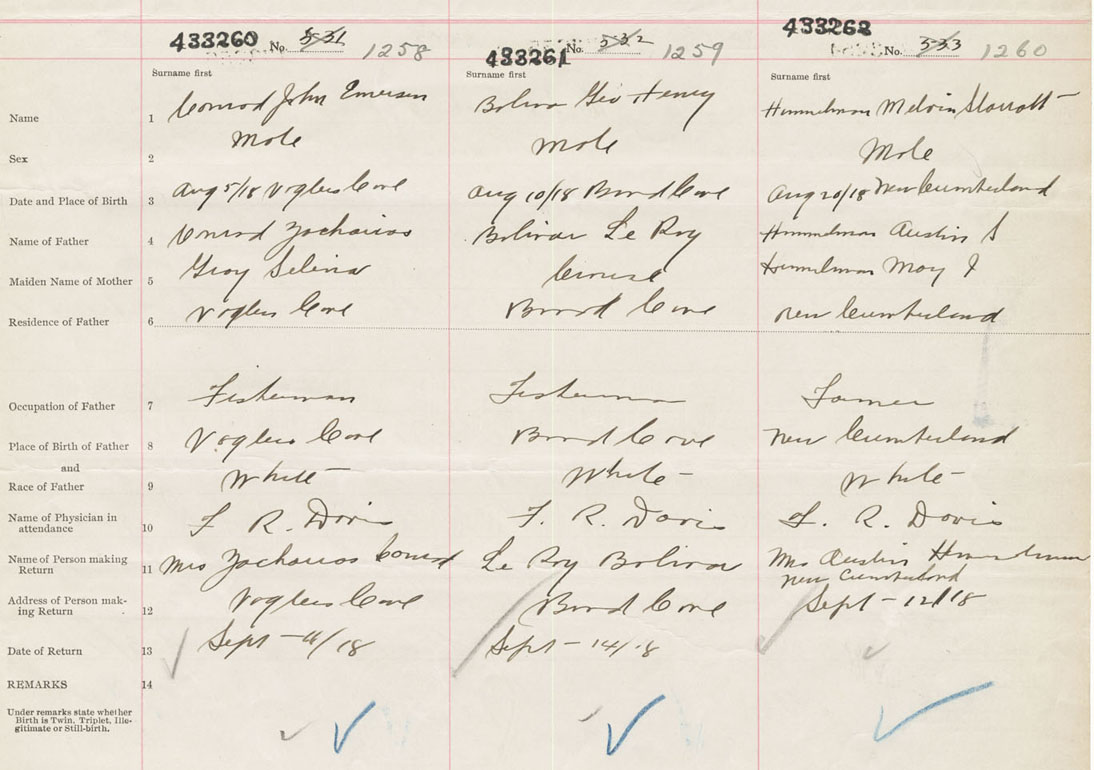 433260 No. 531 1258
433261 No. 532 1259
433262 No. 533 1260
Surname first Surname first Surname first
Name 1 Conrad John Emerson Bolivar Geo Henry Himmelman Melvin Starratt
Sex 2 Male Male Male
Date and Place of Birth 3 Aug 5/18 Voglers Cove Aug 10/18 Broad Cove Aug 20/18 New Cumberland
Name of Father 4 Conrad Zacharias Bolivar Le Roy Himmelman Austin S
Maiden Name of Mother 5 Gray Selina Crouse Himmelman May J
Residence of Father 6 Voglers Cove Broad Cove New Cumberland
Occupation of Father 7 Fisherman Fisherman Farmer
Place of Birth of Father 8 Voglers Cove Broad Cove New Cumberland
and
Race of Father 9 White White White
Name of Physician in
attendance 10 F. R. Davis F. R. Davis F. R. Davis
Name of Person making
Return 11 Mrs Zacharias Conrad Le Roy Bolivar Mrs Austin Himmelman
New Cumberland
Address of Person mak-
ing Return 12 Voglers Cove Broad Cove Sept - 12/18
Date of Return 13 Sept - 11/18 Sept - 14/18
REMARKS 14
Under remarks state whether
Birth is Twin, Triplet, Ille-
gitimate or Still-birth.